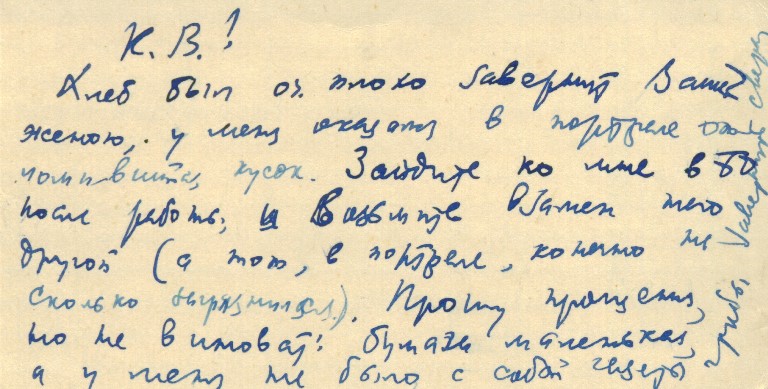 К. В.!
Хлеб был оч. плохо завернут Вашей
женою, у меня оказался в портфеле отло-
мившийся кусок. Зайдите ко мне в
после работы, и возьмите взамен того
другой (а то, в портфеле, конечно не
сколько загрязнился). Прошу прощения,
но не виноват: бумага маленькая,
а у меня не было с собой газеты
грибы, завернуть сверху